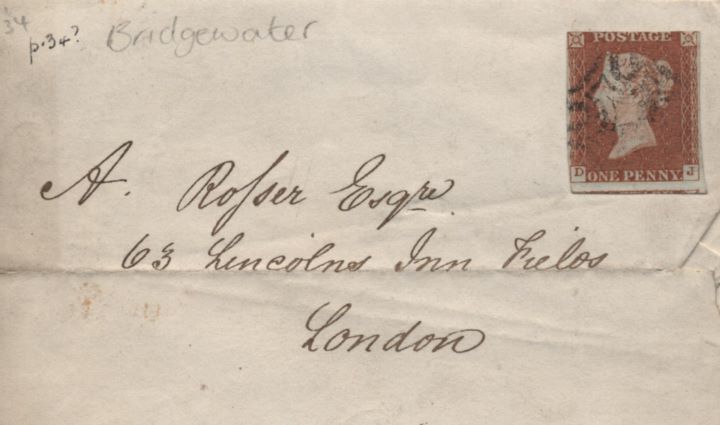 34
p.34?
Bridgewater
POSTAGE
ONE PENNY
D J
A. Roſser Esqre.
63 Lincolns Inn Fields
London